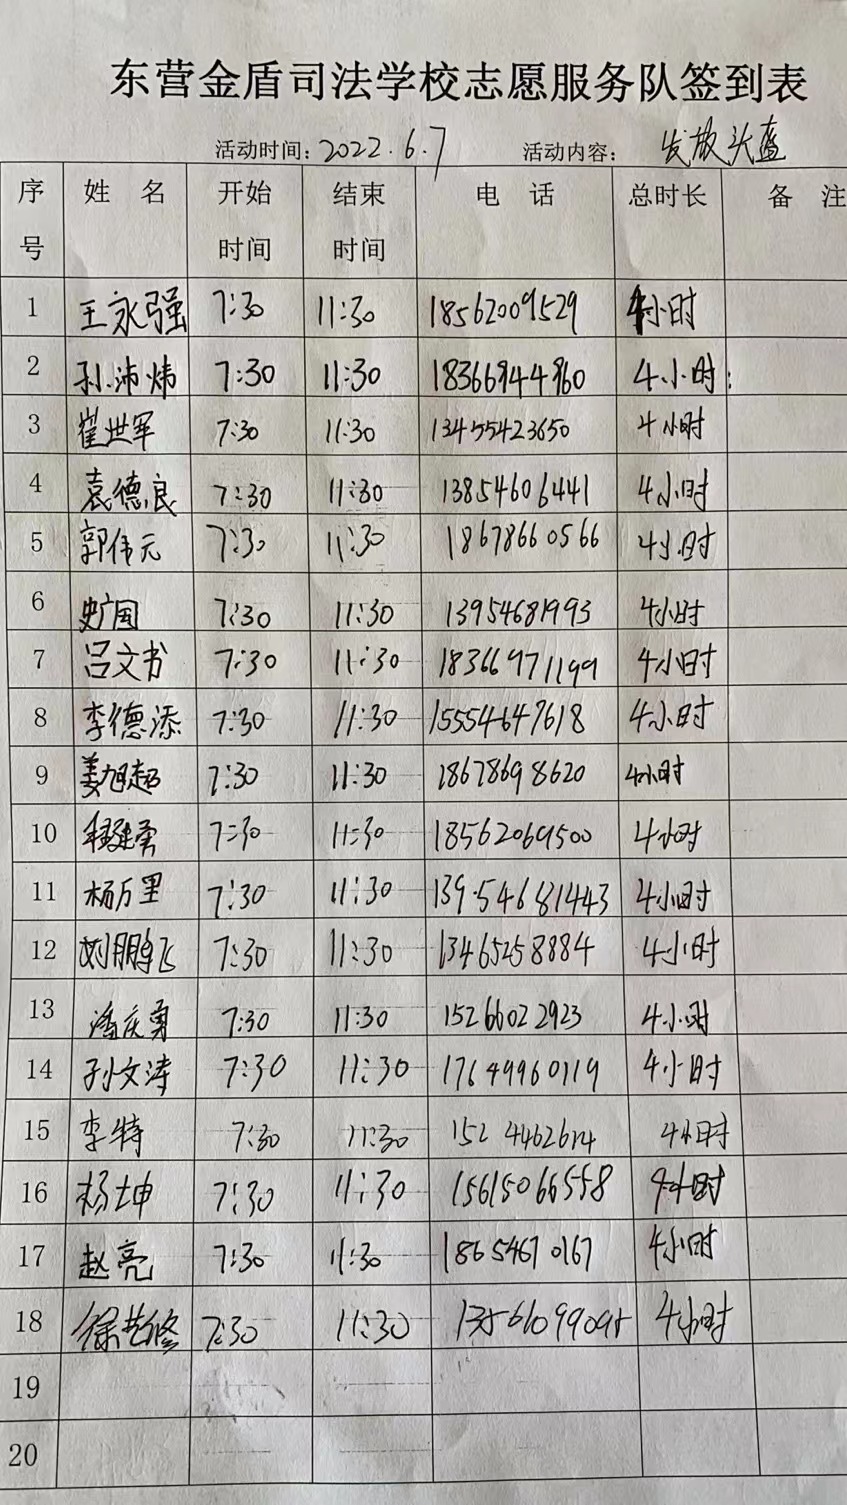 东营金盾司法学校志愿服务队签到表
活动时间：2022.6.7 活动内容： 发放头盔
序号 姓 名 开始时间 结束时间 电 话 总时长 备 注
1 王永强 7:30 11:30 18562009529 4小时
2 孙沛炜 7:30 11:30 18366944960 4小时
3 崔世军 7:30 11:30 13455423650 4小时
4 袁德良 7:30 11:30 13854606441 4小时
5 郭伟元 7:30 11:30 18678660566 4小时
6 史广国 7:30 11:30 13954681993 4小时
7 吕文书 7:30 11:30 18366971199 4小时
8 李德添 7:30 11:30 15554647618 4小时
9 姜旭超 7:30 11:30 18678698620 4小时
10 7:30 11:30 18562069500 4小时
11 杨万里 7:30 11:30 13954681443 4小时
12 刘鹏飞 7:30 11:30 13465258884 4小时
13 潘庆勇 7:30 11:30 15266022923 4小时
14 孙文涛 7:30 11:30 17649960119 4小时
15 李特 7:30 11:30 4小时
16 杨坤 7:30 11:30 15615066558 4小时
17 赵亮 7:30 11:30 18654670167 4小时
18 7:30 11:30 4小时
19
20